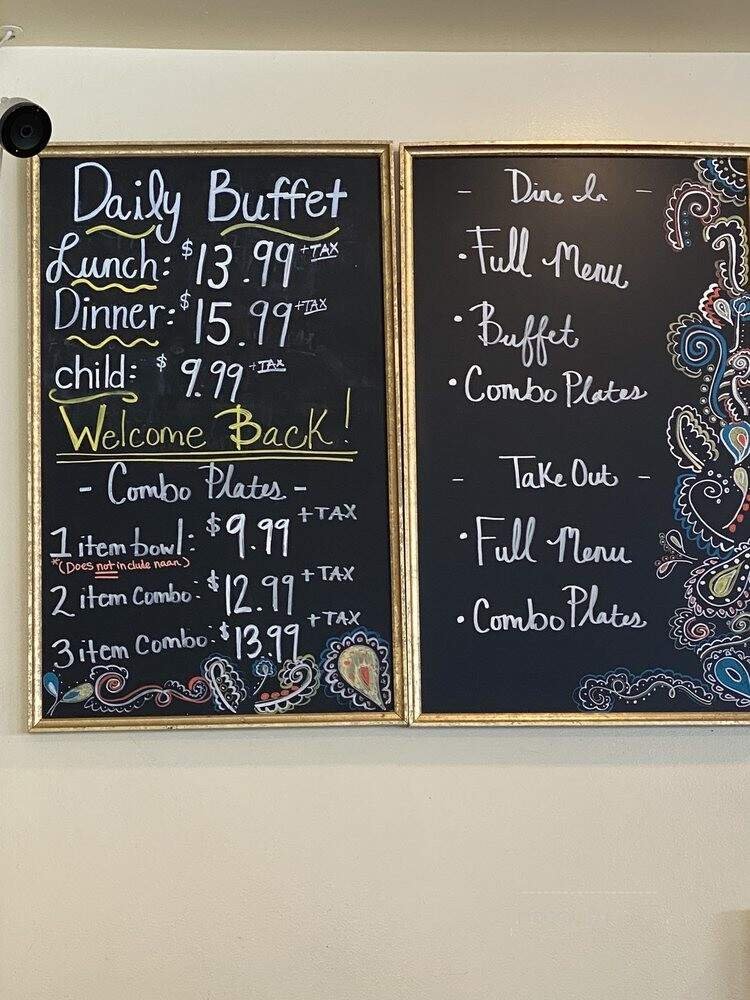 Daily Buffet
Lunch: $13.99 +TAX
Dinner: $15.99 +TAX
child: $9.99 +TAX
Welcome Back!
- Combo Plates -
1 item bowl: $9.99 +TAX
*(Does not include naan)
2 item Combo: $12.99 +TAX
3 item Combo: $13.99 +TAX
- Dine In -
• Full Menu
• Buffet
• Combo Plates
- Take Out -
• Full Menu
• Combo Plates